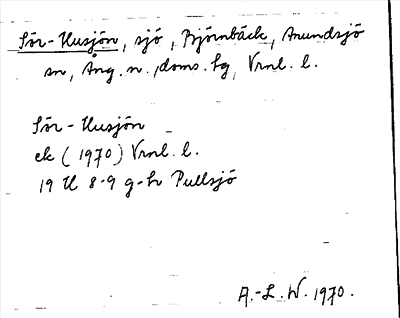 Sör-Husjön, sjö, Björnbäck, Anundsjö
sn, Ång. n. doms. fg, Vrnl. l.
Sör-Husjön
ek (1970) Vrnl. l.
19 H 8-9 g-h Pullsjö
A.-L. W. 1970.